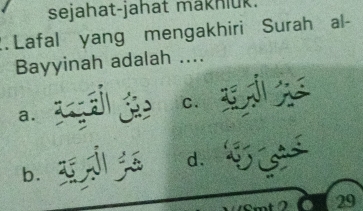 sejahat-jahat makhluk.
2. Lafal yang mengakhiri Surah al-
Bayyinah adalah ....
a. دِيْنُ الْقَيِّمَةِ c. خَيْرُ الْبَرِيَّةِ
b. شَرُّ الْبَرِيَّةِ d. خَشِيَ رَبَّهُ
29